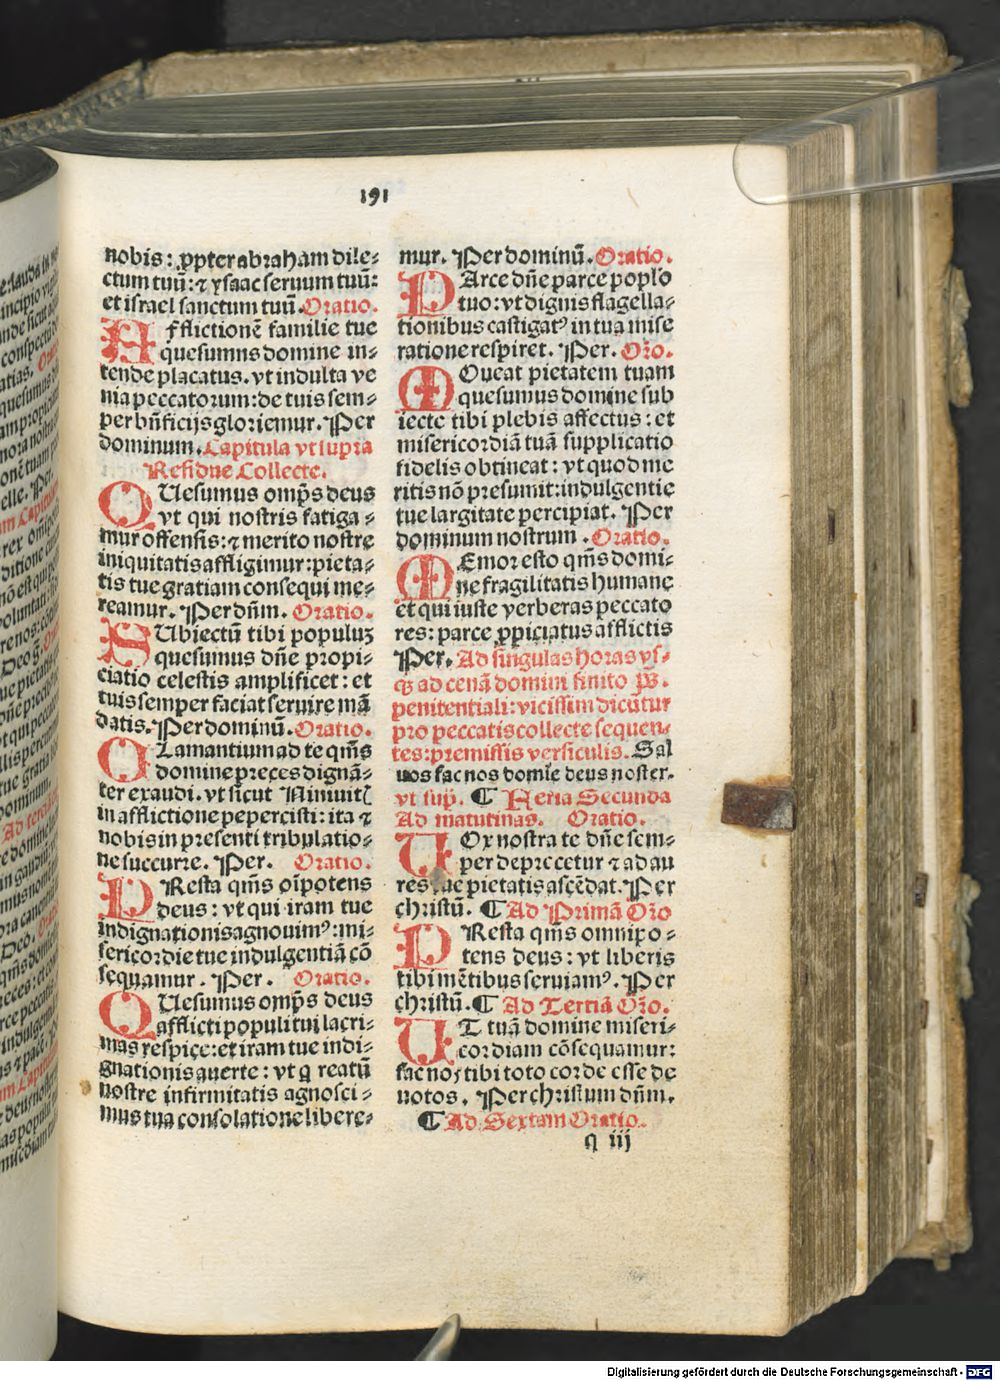 191
nobis: ꝓpter abraham dile⸗
ctum tuū: ⁊ ysaac seruum tuū:
et israel sanctum tuū. Oratio.
Afflictionē familie tue
quesumns domine in⸗
tende placatus. vt indulta ve
nia peccatorum: de tuis sem⸗
per bn̄ficijs gloriemur. Per
dominum. Capitula vt supra
Residue Collecte.
QUesumus omp̄s deus
vt qui nostris fatiga⸗
mur offensis: ⁊ merito nostre
iniquitatis affligimur: pieta⸗
tis tue gratiam consequi me⸗
reamur. Per dn̄m. Oratio.
SUbiectū tibi populuꝫ
quesumus dn̄e propi⸗
ciatio celestis amplificet: et
tuis semper faciat seruire mā
datis. Per dominū. Oratio.
Clamantium ad te qm̄s
domine preces dignā⸗
ter exaudi. vt sicut Niniuit
in afflictione pepercisti: ita ⁊
nobis in presenti tribulatio⸗
ne succurre. Per. Oratio.
PResta qm̄s oīpotens
deus: vt qui iram tue
indignationis agnouimꝰ: mi⸗
sericordie tue indulgentiā cō
sequamur. Per. Oratio.
QUesumus omp̄s deus
afflicti populi tui lacri⸗
mas respice: et iram tue indi⸗
gnationis auerte: vt q reatū
nostre infirmitatis agnosci⸗
mus tua consolatione libere⸗
mur. Per dominū. Oratio.
PArce dn̄e parce poplo
tuo: vt dignis flagella⸗
tionibus castigatꝰ in tua mise
ratione respiret. Per. Oro.
MOueat pietatem tuam
quesumus domine sub
iecte tibi plebis affectus: et
misericordiā tuā supplicatio
fidelis obtineat: vt quod me
ritis nō presumit: indulgentie
tue largitate percipiat. Per
dominum nostrum. Oratio.
MEmor esto qm̄s domi⸗
ne fragilitatis humane
et qui iuste verberas peccato
res: parce ꝓpiciatus afflictis
Per. Ad singulas horas vs⸗
qꝫ ad cenā domini finito ps̄.
penitentiali: vicissim dicutur
pro peccatis collecte sequen⸗
tes: premissis versiculis. Sal
uos fac nos domīe deus noster.
vt sup̄. ¶ Feria Secunda
Ad matutinas. Oratio.
UOx nostra te dn̄e sem⸗
per deprecetur ⁊ ad au
res tue pietatis ascēdat. Per
christū. ¶ Ad Primā Oro
PResta qm̄s omnipo⸗
tens deus: vt liberis
tibi mētibus seruiamꝰ. Per
christū. ¶ Ad Tertiā Oro.
UT tuā domine miseri⸗
cordiam cōsequamur:
fac nos tibi toto corde esse de
uotos. Per christum dn̄m.
¶ Ad Sextam Oratio.
q iij
Digitalisierung gefördert durch die Deutsche Forschungsgemeinschaft - DFG